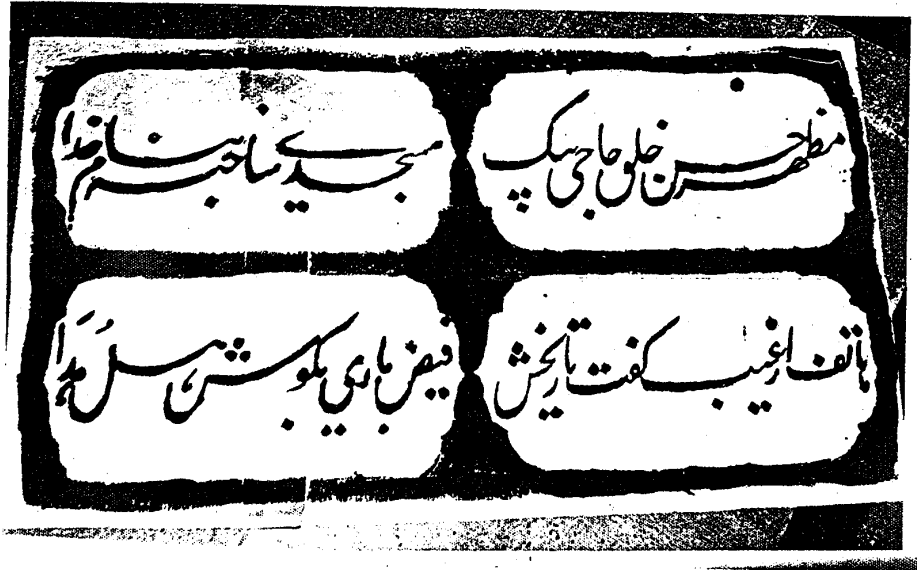 مظهر حسن خلق حاجی بیک
مسجدے ساخته بنام خدا
هاتف از غیب گفت تاریخش
فیض باری بگوش اهل هدا